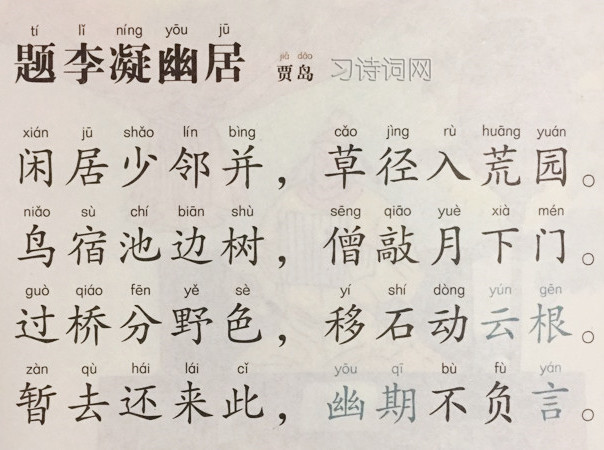 tí lǐ níng yōu jū
题李凝幽居
jiǎ dǎo
贾岛
习诗词网
xián jū shǎo lín bìng cǎo jìng rù huāng yuán
闲居少邻并，草径入荒园。
niǎo sù chí biān shù sēng qiāo yuè xià mén
鸟宿池边树，僧敲月下门。
guò qiáo fēn yě sè yí shí dòng yún gēn
过桥分野色，移石动云根。
zàn qù hái lái cǐ yōu qī bù fù yán
暂去还来此，幽期不负言。